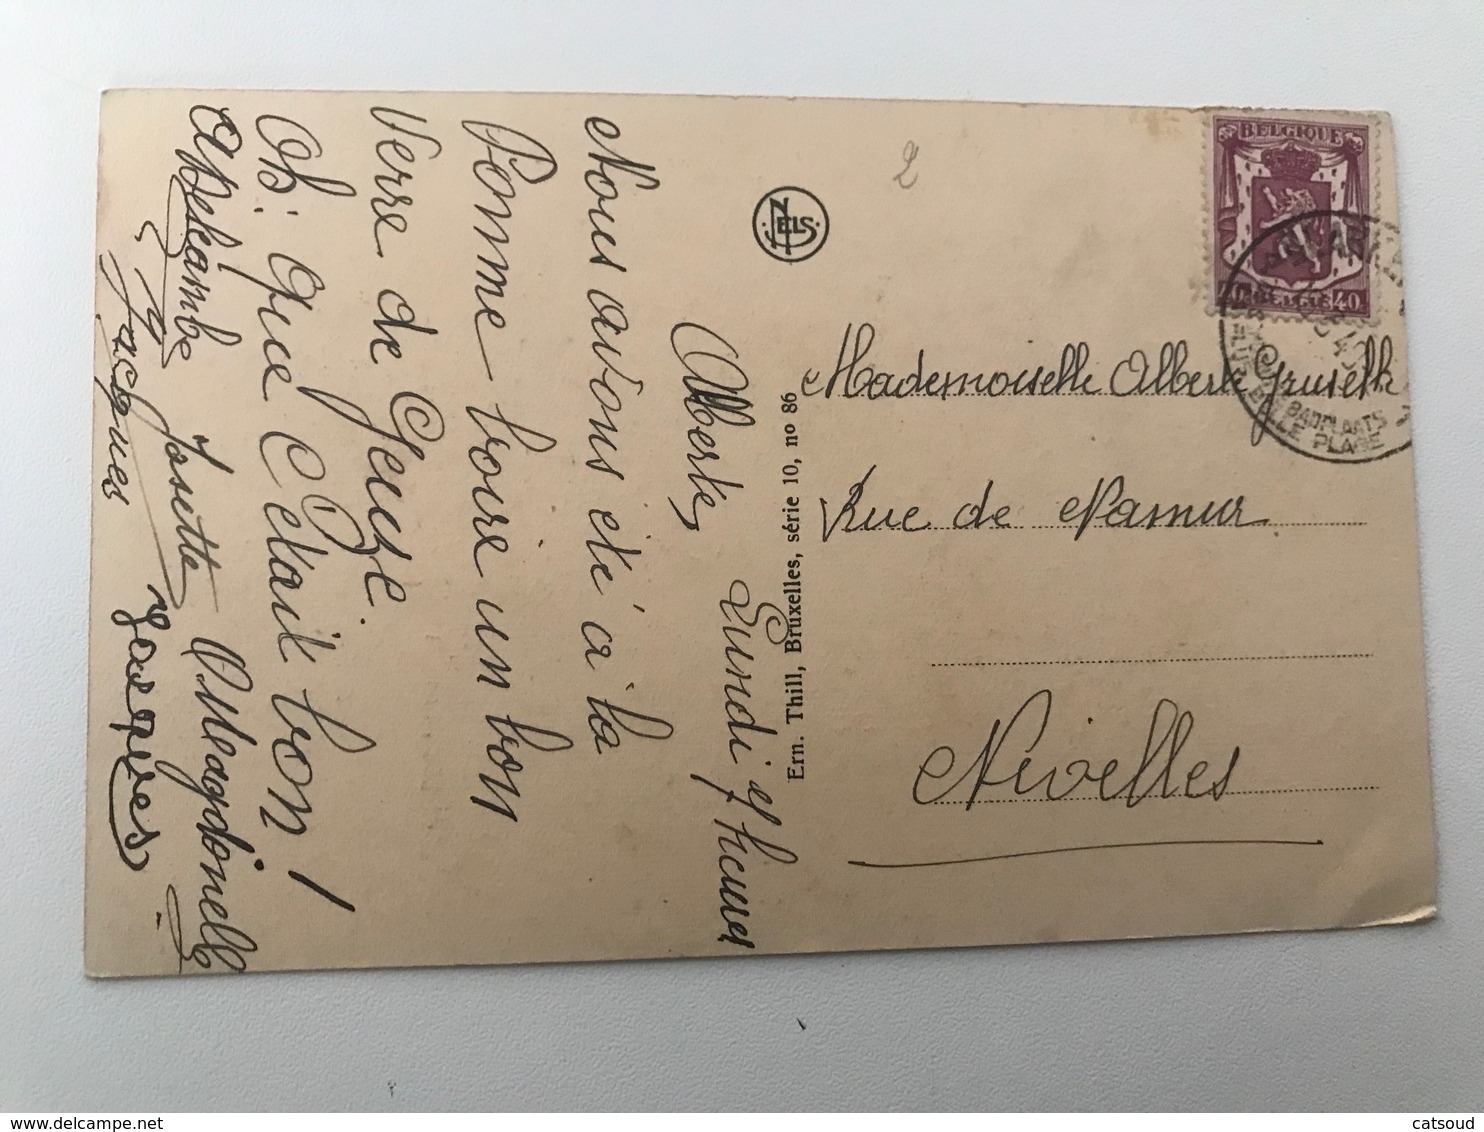 Lundi 9 heures
Alberte,
Nous avons été à la
Pomme boire un bon
Verre de Geuze.
Oh! Que c'était bon!
Josette
Jacques
Jacques
Ern. Thill, Bruxelles, série 10, no 86
NELS
2
BELGIQUE
BELGIË 40
BADPLAATS
BELLE PLAGE
Mademoiselle Alberte
Rue de Namur
Nivelles
delcampe.net
catsoud